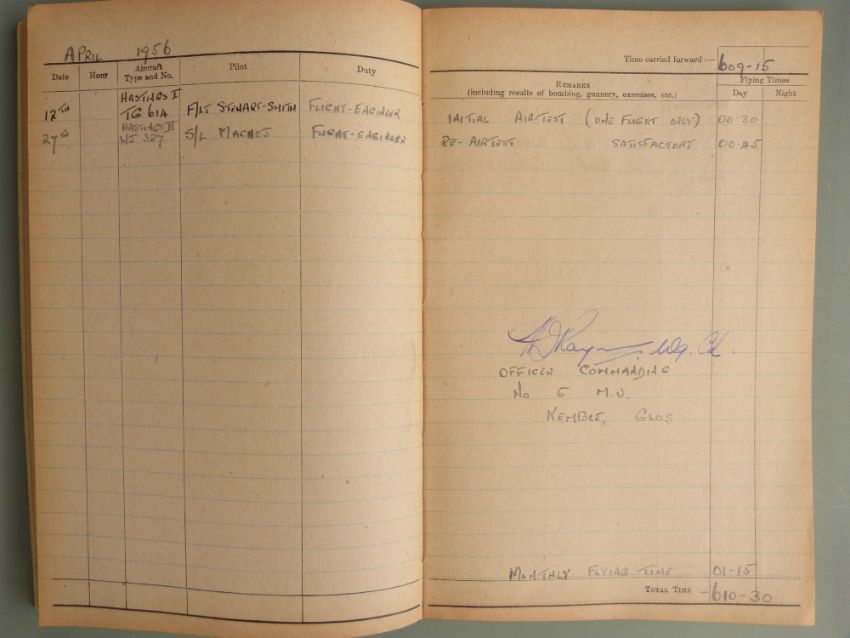 APRIL 1956
Date Hour Aircraft Type and No. Pilot Duty
12TH HASTINGS I TG 614 F/LT STEWART-SMITH FLIGHT-ENGINEER
27th HASTINGS II WJ 327 S/L FLIGHT-ENGINEER
Time carried forward :— 609-15
REMARKS
(including results of bombing, gunnery, exercises, etc.)
Flying Times
Day Night
INITIAL AIRTEST (ONE FLIGHT ONLY) 00.30
RE-AIRTEST SATISFACTORY 00.45
Wg. Cd.
OFFICER COMMANDING
No 5 M.U.
KEMBLE, GLOS
MONTHLY FLYING TIME 01-15
TOTAL TIME ... 610-30